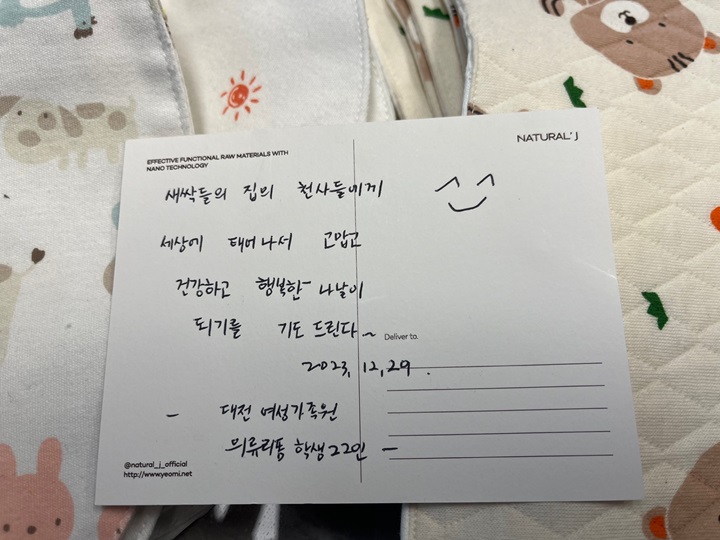 EFFECTIVE FUNCTIONAL RAW MATERIALS WITH
NANO TECHNOLOGY
NATURAL' J
새싹들의 집의 천사들에게
세상에 태어나서 고맙고
건강하고 행복한 나날이
되기를 기도 드린다~
Deliver to.
2023, 12, 29.
- 대전 여성가족원
의류리폼 학생 22인 -
@natural_j_official
http://www.yeomi.net